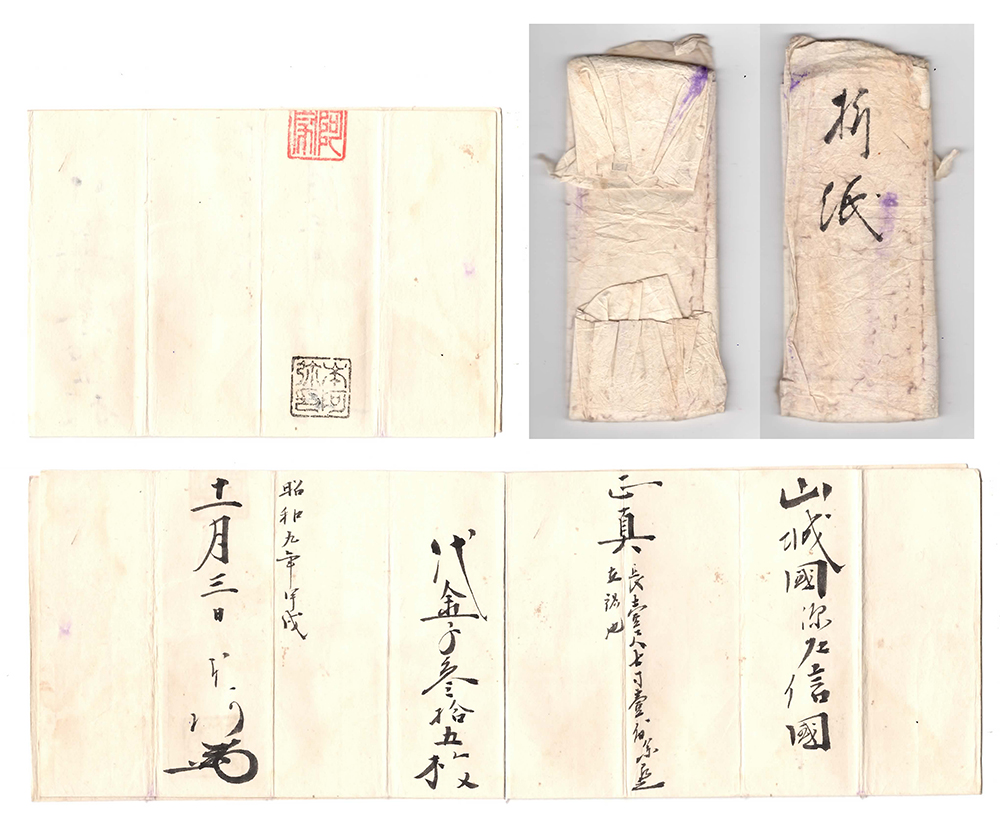 折紙
本阿
弥印
山城國源左信國
正真
長壹尺七寸壹分
銘也
代金子參拾五枚
昭和九年甲戌
十一月三日 本阿